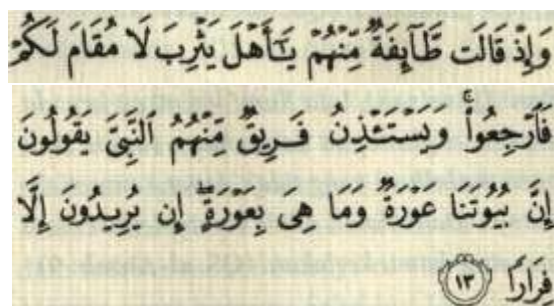 وَإِذْ قَالَت طَّآئِفَةٌ مِّنْهُمْ يَـٰٓأَهْلَ يَثْرِبَ لَا مُقَامَ لَكُمْ
فَٱرْجِعُوا۟ ۚ وَيَسْتَـْٔذِنُ فَرِيقٌ مِّنْهُمُ ٱلنَّبِىَّ يَقُولُونَ
إِنَّ بُيُوتَنَا عَوْرَةٌ وَمَا هِىَ بِعَوْرَةٍ ۖ إِن يُرِيدُونَ إِلَّا
فِرَارًا ١٣